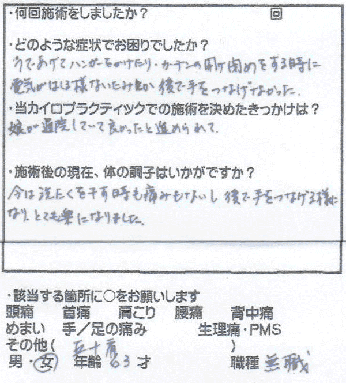 ・何回施術をしましたか? 回
・どのような症状でお困りでしたか?
うであげてハンガーをかけたり、カーテンの開け閉めをする時に
電気がはしる様ないたみ 後で手をつなげなかった。
・当カイロプラクティックでの施術を決めたきっかけは?
娘が通院していて良かったと進められて。
・施術後の現在、体の調子はいかがですか?
今は洗たくを干す時も痛みもないし 後で手をつなげる様に
なり、とても楽になりました。
・該当する箇所に○をお願いします
頭痛 首痛 肩こり 腰痛 背中痛
めまい 手/足の痛み 生理痛・PMS
その他( 五十肩 )
男・女 年齢 63 才 職種 無職